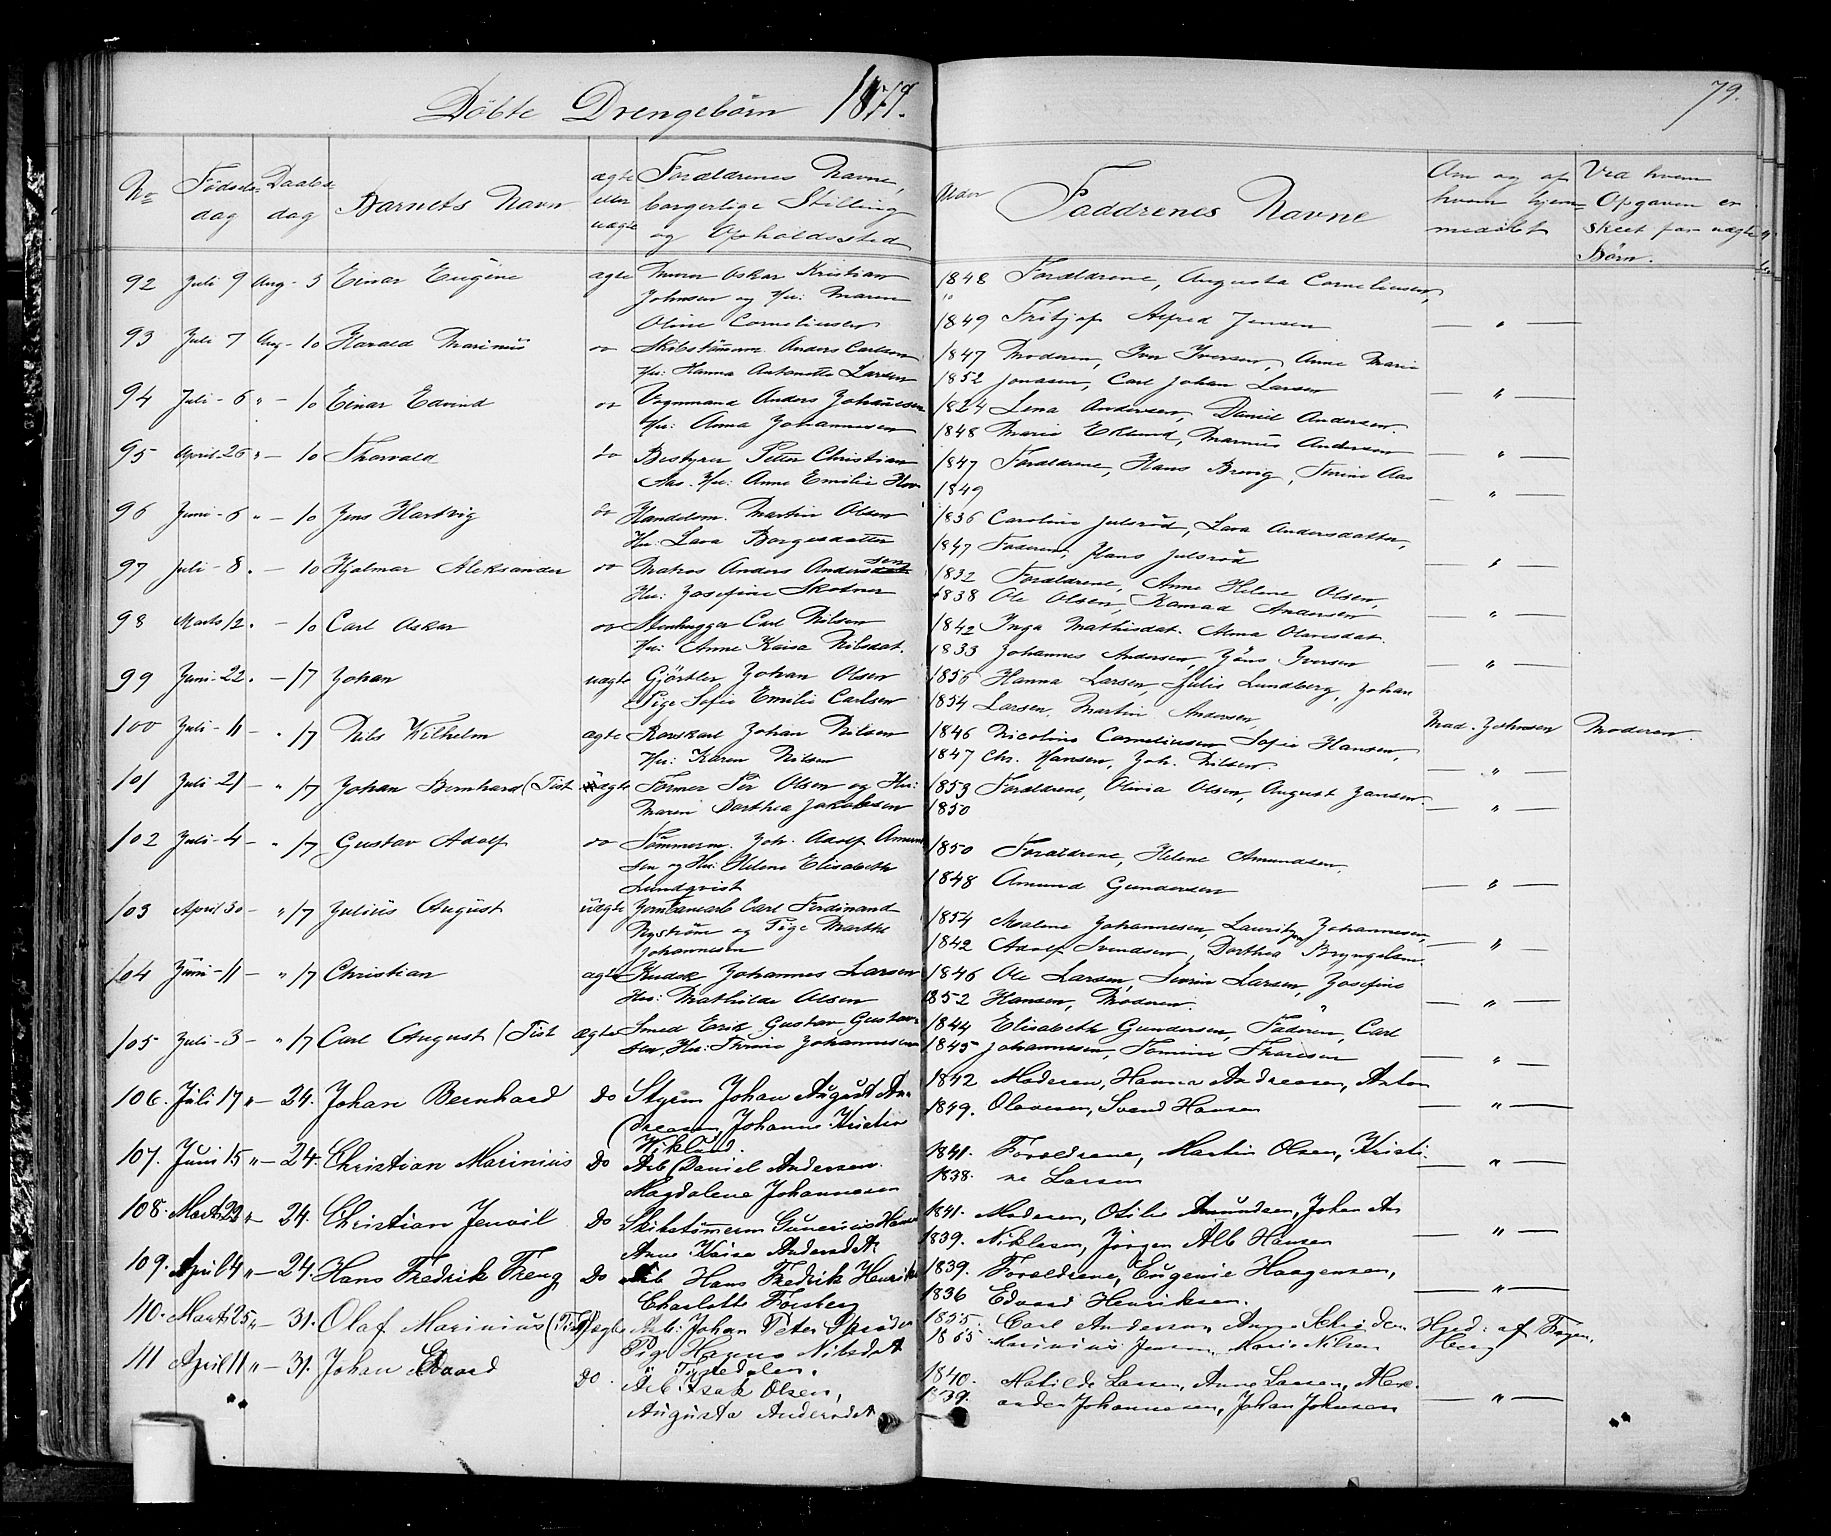 Döbte Drengebörn 1879.
79.
No
Fødsels-
dag
Daabs-
dag
Barnets Navn
ægte
eller
uægte
Forældrenes Navne,
borgerlige Stilling
og Opholdssted
Faddrenes Navne
Om og af
hvem hjem-
medöbt
Ved hvem
Opgaven er
skeet for uægte
Børn.
92 Juli 9 Aug - 3 Einar Eugéne ægte Murer Oskar Kristian 1848 Forældrene, Augusta Corneliusen,
Johnsen og Hu: Maren
Oline Corneliusen 1849 Fritjof Alfred Jensen
93 Juli 7 Aug - 10 Harald Marinus do Skibstömmm. Anders Carlsen 1847 Moderen, Iver Iversen, Anne Marie
Hu: Hanna Antonette Larsen 1852 Jonasen, Carl Johan Larsen
94 Juli - 6 " - 10 Einar Edvind do Vognmand Anders Johannesen 1824 Lena Andersen, Daniel Andersen.
Hu: Anna Johannesen 1848 Marie Eklund, Marnus Andersen
95 April 26 " - 10 Thorvald do Bestyrer Petter Christian 1847 Forældrene, Hans Brevig, Thrine Aas
Aas. Hu: Anne Emilie Hov 1849
96 Juni - 6 " - 10 Jens Hartvig do Handelsm. Martin Olsen 1836 Caroline Julsröd, Lava Andersdatter,
Hu: Lava Borgesdatter 1847 Faderen, Hans Julsröd
97 Juli - 8 . - 10 Hjalmar Aleksander do Matros Anders Andersen 1832 Forældrene, Anne Helene Olsen,
Hu: Josefine Skotner 1838 Ole Olsen, Konrad Andersen
98 Marts 12 . - 10 Carl Oskar do Stenhugger Carl Nilsen 1842 Inga Mathisdat. Alma Olavesdat.
Hu: Anne Kaisa Nilsdat. 1833 Johannes Andersen, Jöns Iversen
99 Juni - 22 . - 17 Johan uægte Gjörtler Johan Olsen 1856 Hanna Larsen, Julie Lundberg, Johan
Pige Sofie Emilie Carlsen 1854 Larsen, Martin Andersen,
100 Juli - 11 - " 17 Nils Vilhelm ægte Rorskarl Johan Nilsen 1846 Nicoline Corneliusen Sofie Hansen, Mad. Johnsen Moderen.
Hu: Karen Nilsen 1847 Chr. Hansen, Joh. Nilsen
101 Juli - 21 - " 17 Johan Bernhard (Tist ægte Former Per Olsen og Hu: 1853 Forældrene, Olivia Olsen, August Jansen.
Maren Dorthea Jakobsen 1850
102 Juli - 4 - " 17 Gustav Adolf do Tømmerm. Joh. Adolf Amund 1850 Forældrene, Helene Amundsen,
sen og Hu: Helene Elisabeth
Lundqvist 1848 Amund Gundersen
103 April 30 - " 17 Julius August uægte Carl Ferdinand 1854 Malene Johannesen, Lauritz Johannesen,
Nyström og Pige Marthe 1842 Adolf Svendsen, Dorthea Bryngelsen.
Johannesen
104 Juni - 11 - " 17 Christian ægte Kudsk Johannes Larsen 1846 Ole Larsen, Severin Larsen, Josefine
Hu: Mathilde Olsen 1852 Hansen, Moderen.
105 Juli - 3 - " 17 Carl August (Tist ægte Smed Erik Gustav Gustav- 1844 Elisabeth Gundersen, Faderen, Carl
sen, Hu: Thrine Johannesen 1845 Johannesen, Tomine Thoresen
106. Juli 17 " - 24. Johan Bernhard do Styrm Johan August An- 1842 Moderen, Hanna Andreasen, Anton
dreasen, Johanne Kristin 1849. Olavesen, Svend Hansen
Wiklund.
107. Juni 15 " - 24. Christian Marinius do Arb Daniel Andersen. 1841. Forældrene, Martin Olsen, Kristi.
Magdalene Johannesen 1838. ne Larsen
108. Marts 29 " - 24. Christian Jenvil do Skibstömerm Gunerius Hansen 1841. Moderen, Otilie Amundsen, Johan An
Anne Kaisa Andersdt. 1839. Niklasen, Jørgen Alb Hansen
109. April 4 " - 24. Hans Fredrik Frenz do Arb Hans Fredrik Henrik 1839. Forældrene, Eugenie Haagensen,
Charlotte Forsberg 1836 Edvard Henriksen.
110. Marts 25 " - 31. Olaf Marinius (Tist) ægte Arb: Johan Peter 1835. Carl Andersen, Anne Schrøder Hjed: af Frøken
Pig Hagnus Nilsdat 1855. Marinius Jensen, Marie Nilsen Herg
Tistedalen.
111 April 11 " - 31. Johan Edvard do. Arb. Isak Olsen, 1840. Matilde Larsen, Anne Larsen, Alex-
Augusta Andersdat 1839. ander Johannesen, Johan Johnsen